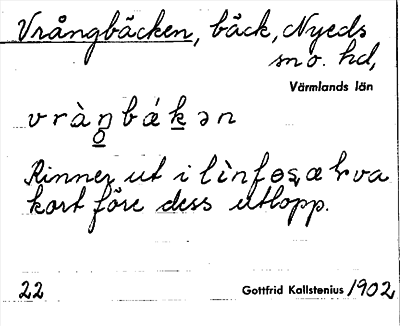 Vrångbäcken, bäck, Nyeds
sn o. hd,
Värmlands län
vràŋbákən
Rinner ut i
kort före dess utlopp.
22 Gottfrid Kallstenius 1902